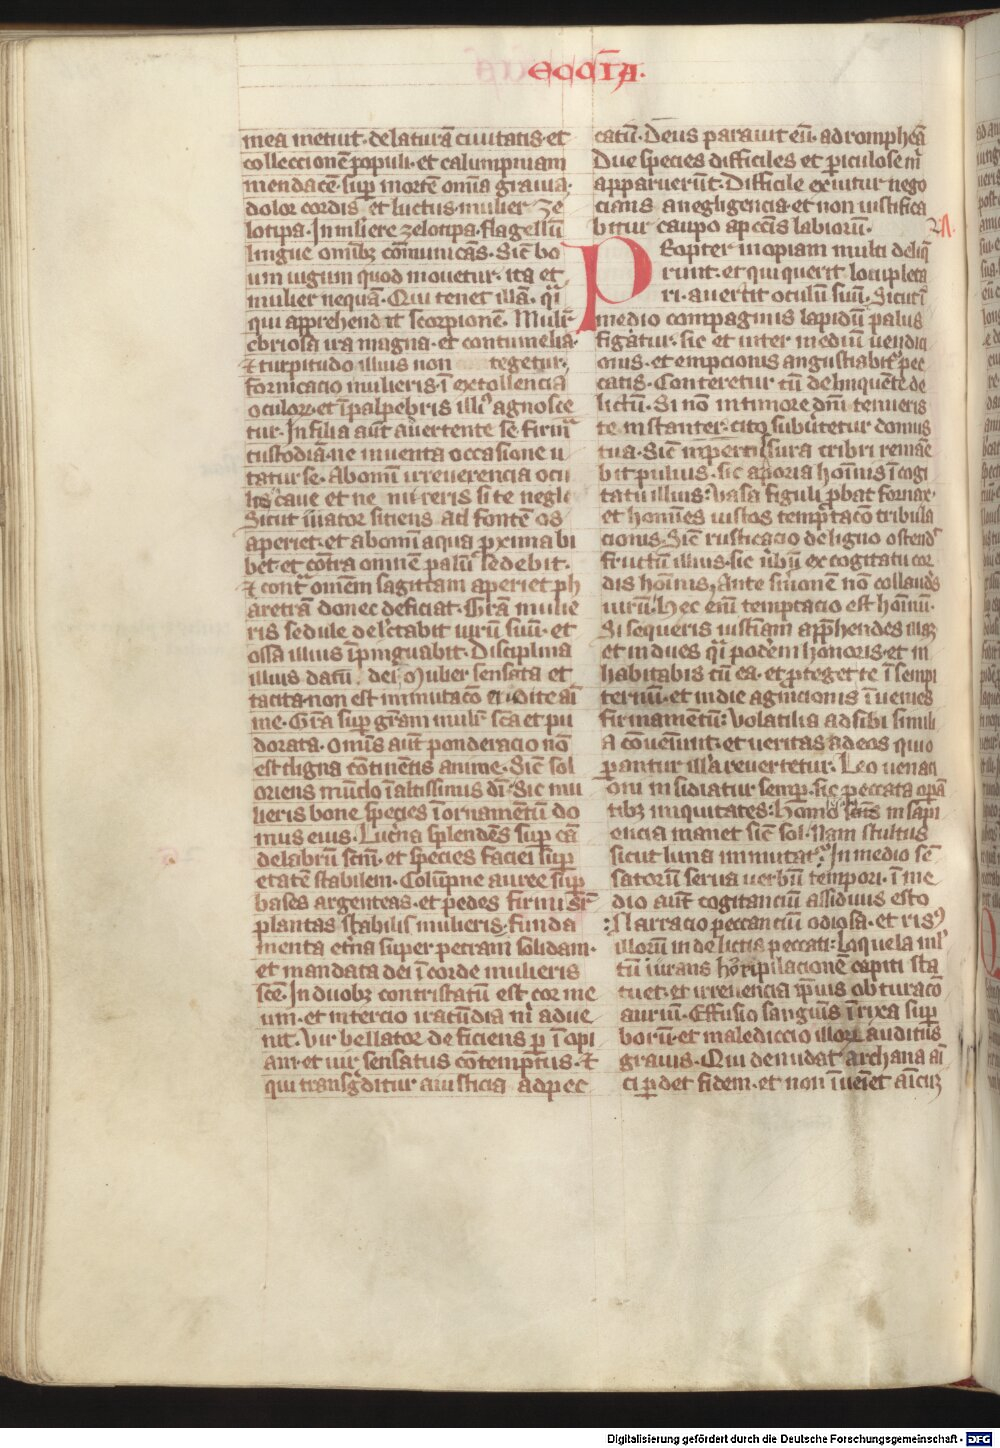 eccĪA·
mea metuit· delaturā ciuitatis· et
colleccionē populi· et calumpniam
mendacē· sup̲ mortē om̄ia grauia·
dolor cordis et luctus· mulier ze
lotipa· In mĺiere zelotipa· flagellū
lingue om̄ibꝫ cōmunicās· Sic̄ bo
um iugum quod mouetur· ita et
mulier nequā· Qui tenet illā· q̄i
qui apprehendit scorpionē· Mulīr
ebriosa ira magna· et contumelia·
⁊ turpitudo illius non tegetur·
fornicacio mulieris· ī extollencia
oculoꝝ· et ī palpebris illiꝰ agnosce
tur· In filia aūt auertente se· firma
custodiā· ne inuenta occasione u
tatur se· Ab om̄i irreuerencia ocu
lis cāue et ne mireris si te negle
Sicut uiator sitiens ad fontē os
aperiet· et ab om̄i aqua ꝓxima bi
bet· et cōtra omnē palū sedebit·
⁊ contͣ omēm sagittam aperiet ph
aretrā donec deficiat· Grā mulie
ris sedule delectabit uirū suū· et
ossa illius īpinguabit· Disciplina
illius datū dei· Mulier sensata et
tacita· non est inmutacō erudite aī
me· Grā sup̲ grām mulīr sc̄a et pu
dorata· Omīs aūt ponderacio nō
est digna cōtinētis anime· Sic̄ sol
oriens mūdo ī altissimis dī· Sic mu
lieris bone species ī ornamētū do
mus eius· Lucīna splendēs sup̲ cā
delabrū sc̄m̄· et species faciei sup̲
etatē stabilem· Colūpne auree sup̲
bases argenteas· et pedes firmi sr̄
plantas stabilis mulieris· funda
menta et̄na super petram solidam·
et mandata dei ī corde mulieris
sc̄e· In duobꝫ contristatū est cor me
um· et in tercio iracūdia m̄ adue
nit· Vir bellator deficiens ꝑ īopi
am· et uir sensatus cōtemptus· ⁊
qui transg̃ditur a iusticia ad pec
catū· Deus parauit eū· ad rompheā
Due species difficiles et ꝑiculose m̄
apparuerūt· Difficile exuitur nego
cians a negligencia· et non iustifica
bitur caupo a pecc̄is labiorū·
PRopter inopiam multi deliq̄
runt· et qui querit locupleta
ri· auertit oculū suū· Sicut ī
medio compaginis lapidū palus
figatur· sic et inter mediū uendic
ionis· et empcionis angustiabitꝰ pec
catis· Conteretur cū delinquēte de
lictū· Si nō in timore dn̄i tenueris
te instanter· cito subūtetur domus
tua· Sic̄ in pertussura cribri remāe
bit puluis· sic aporia hoīnis ī cogi
tatu illius· Vasa figuli ꝓbat fornax·
et homīes iustos temptacō tribula
cionis· Sic̄ rusticacio de ligno ostendͥ
fructū illius· sic ūbū ex cogitatu cor
dis hoīnis, Ante smonē nō collaudes
uirū· Hec enī temptacio est hoīnū·
Si sequeris iusticiam app̄hendes illaꝫ
et indues q̄i poderī honoris· et in
habitabis cū ea· et proteget te ī sempi
ternū· et in die agnicionis īuenies
firmamētū· Volatilia ad sibi simili
a cōueīunt· et ueritas ad eos qui o
ꝑantur illā reuertetur· Leo uenaci
oni insidiatur semp̲· sic peccata opan
tibꝫ iniquitates· Homo sc̄us in sapi
encia manet sic̄ sol· Nam stultus
sicut luna inmutatꝰ· In medio sē
satorū serua uerbū tempori· ī me
dio aūt cogitanciū assiduus esto
Narracio peccanciū odiosa· et risꝰ
illoꝝ in delictis peccati· Loquela ml̄
tū iurans horripilacionē capiti sta
tuet· et irreuencia ipsius obturacō
auriū· Effusio sanguīs ī rixa sup̲
boꝝ· et malediccio illoꝝ auditus
grauis· Qui denudat archana ami
ci ꝑdet fidem· et non īueīet aīcuꝫ
Digitalisierung gefördert durch die Deutsche Forschungsgemeinschaft - DFG